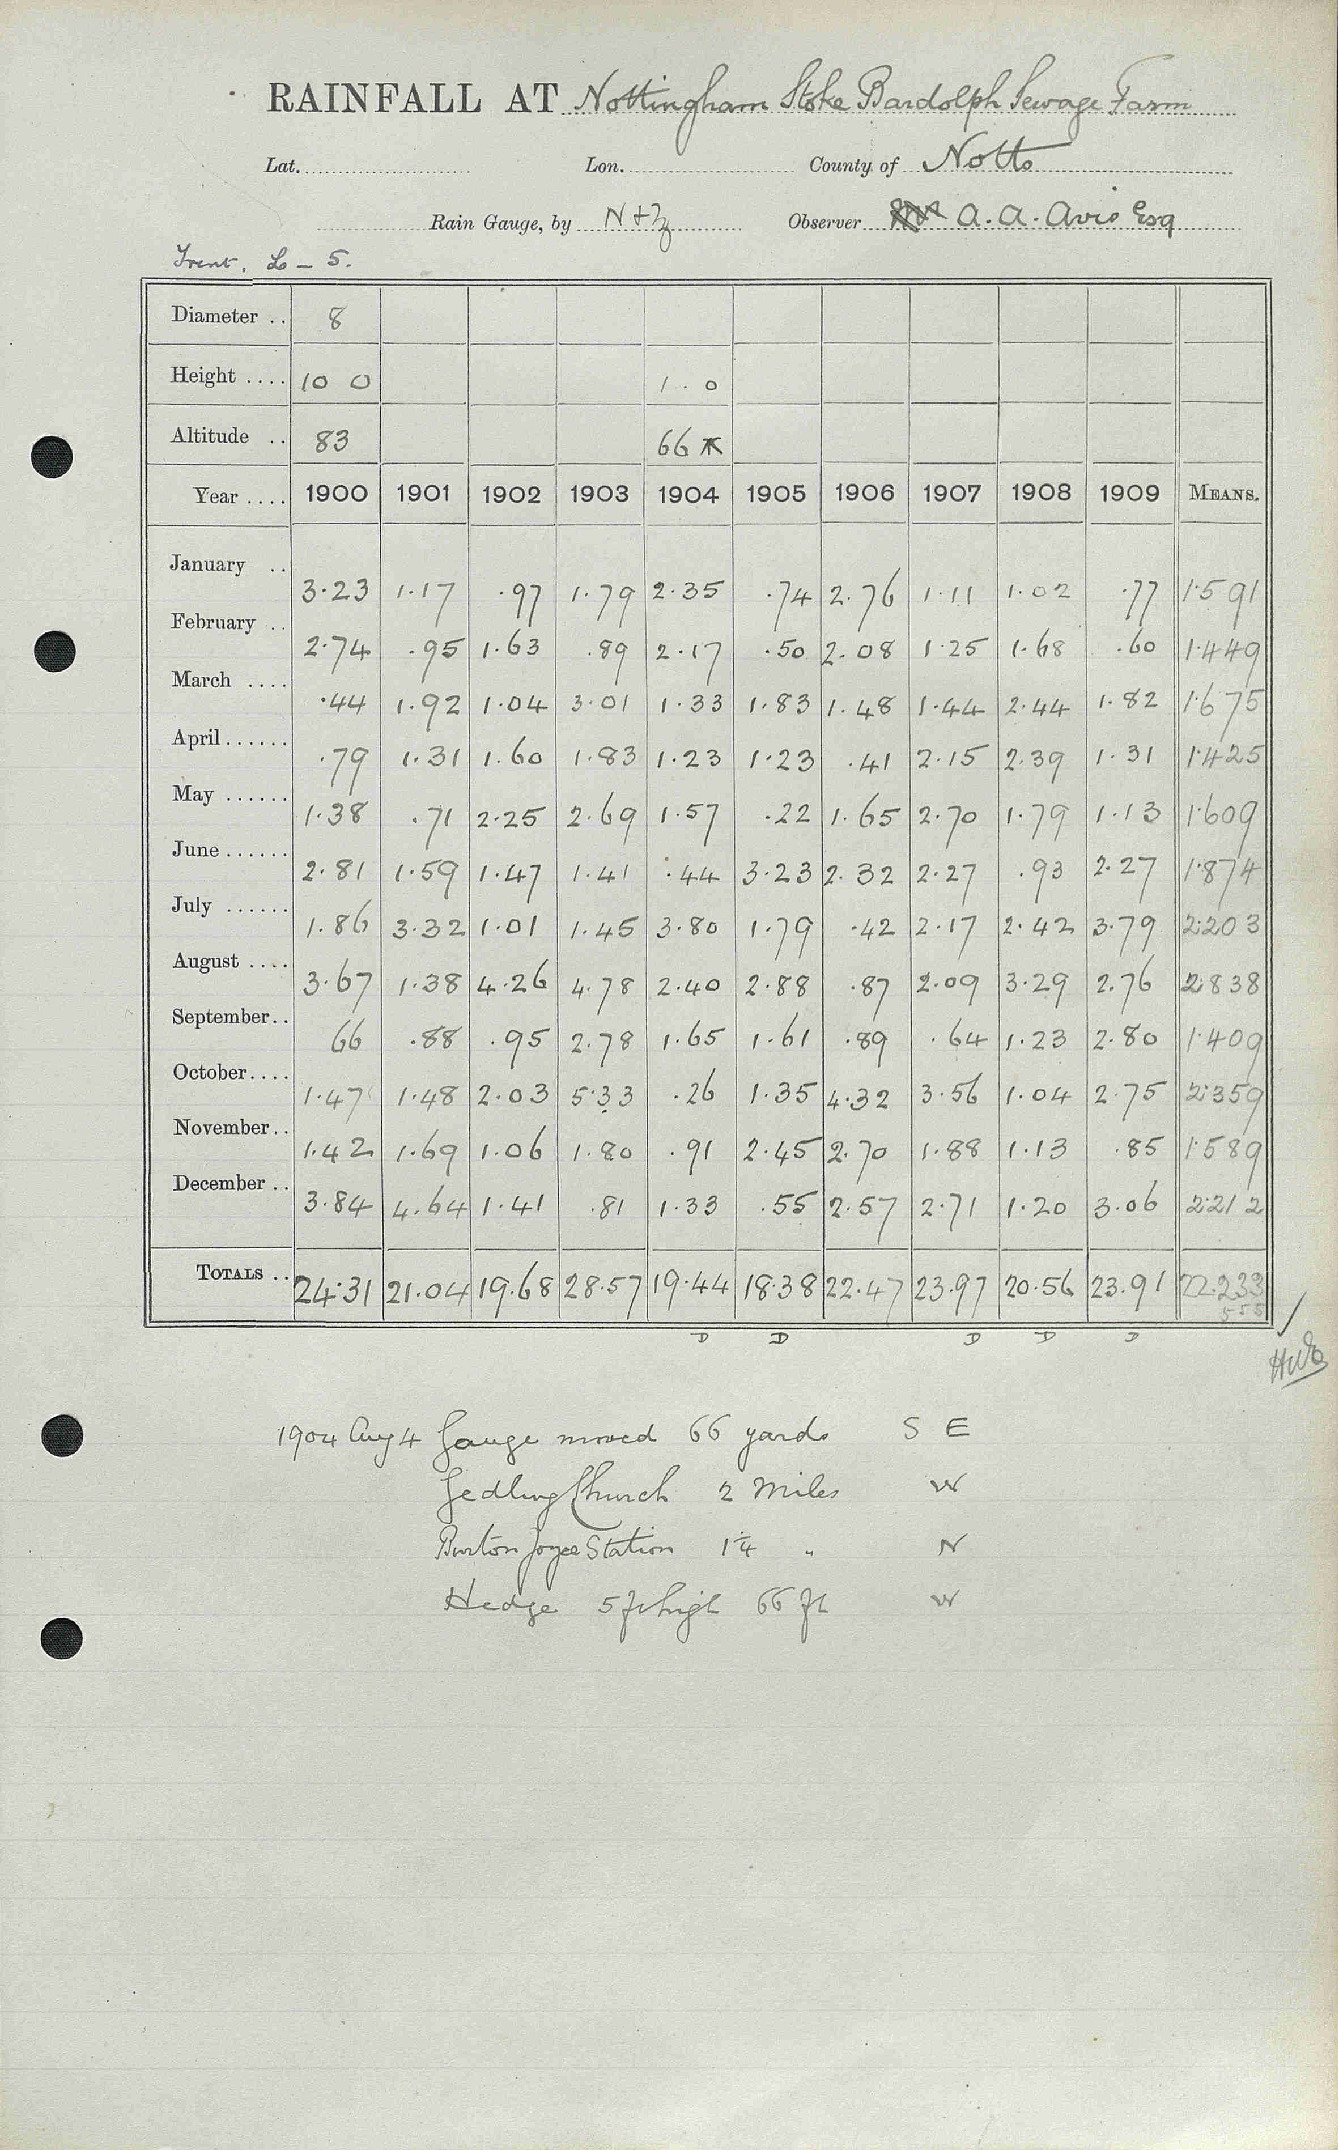 RAINFALL AT Nottingham Stoke Bardolph Sewage Farm
Lat. Lon. County of Notts
Rain Gauge, by N+Z Observer A. A. Avis Esq
Trent. L – 5.
Diameter .. 8
Height .... 10 0 1 . 0
Altitude .. 83 66
Year .... 1900 1901 1902 1903 1904 1905 1906 1907 1908 1909 MEANS.
January .. 3.23 1.17 .97 1.79 2.35 .74 2.76 1.11 1.02 .77 1.591
February .. 2.74 .95 1.63 .89 2.17 .50 2.08 1.25 1.68 .60 1.449
March .... .44 1.92 1.04 3.01 1.33 1.83 1.48 1.44 2.44 1.82 1.675
April...... .79 1.31 1.60 1.83 1.23 1.23 .41 2.15 2.39 1.31 1.425
May ...... 1.38 .71 2.25 2.69 1.57 .22 1.65 2.70 1.79 1.13 1.609
June...... 2.81 1.59 1.47 1.41 .44 3.23 2.32 2.27 .93 2.27 1.874
July ...... 1.86 3.32 1.01 1.45 3.80 1.79 .42 2.17 2.42 3.79 2.203
August .... 3.67 1.38 4.26 4.78 2.40 2.88 .87 2.09 3.29 2.76 2.838
September.. 66 .88 .95 2.78 1.65 1.61 .89 .64 1.23 2.80 1.409
October.... 1.47 1.48 2.03 5.33 .26 1.35 4.32 3.56 1.04 2.75 2.359
November.. 1.42 1.69 1.06 1.80 .91 2.45 2.70 1.88 1.13 .85 1.589
December .. 3.84 4.64 1.41 .81 1.33 .55 2.57 2.71 1.20 3.06 2.212
TOTALS .. 24.31 21.04 19.68 28.57 19.44 18.38 22.47 23.97 20.56 23.91 22.233
555
D D D D D
1904 Aug 4 Gauge moved 66 yards S E
Gedling Church 2 miles W
Burton Joyce Station 1¼ " N
Hedge 5 ft high 66 ft W